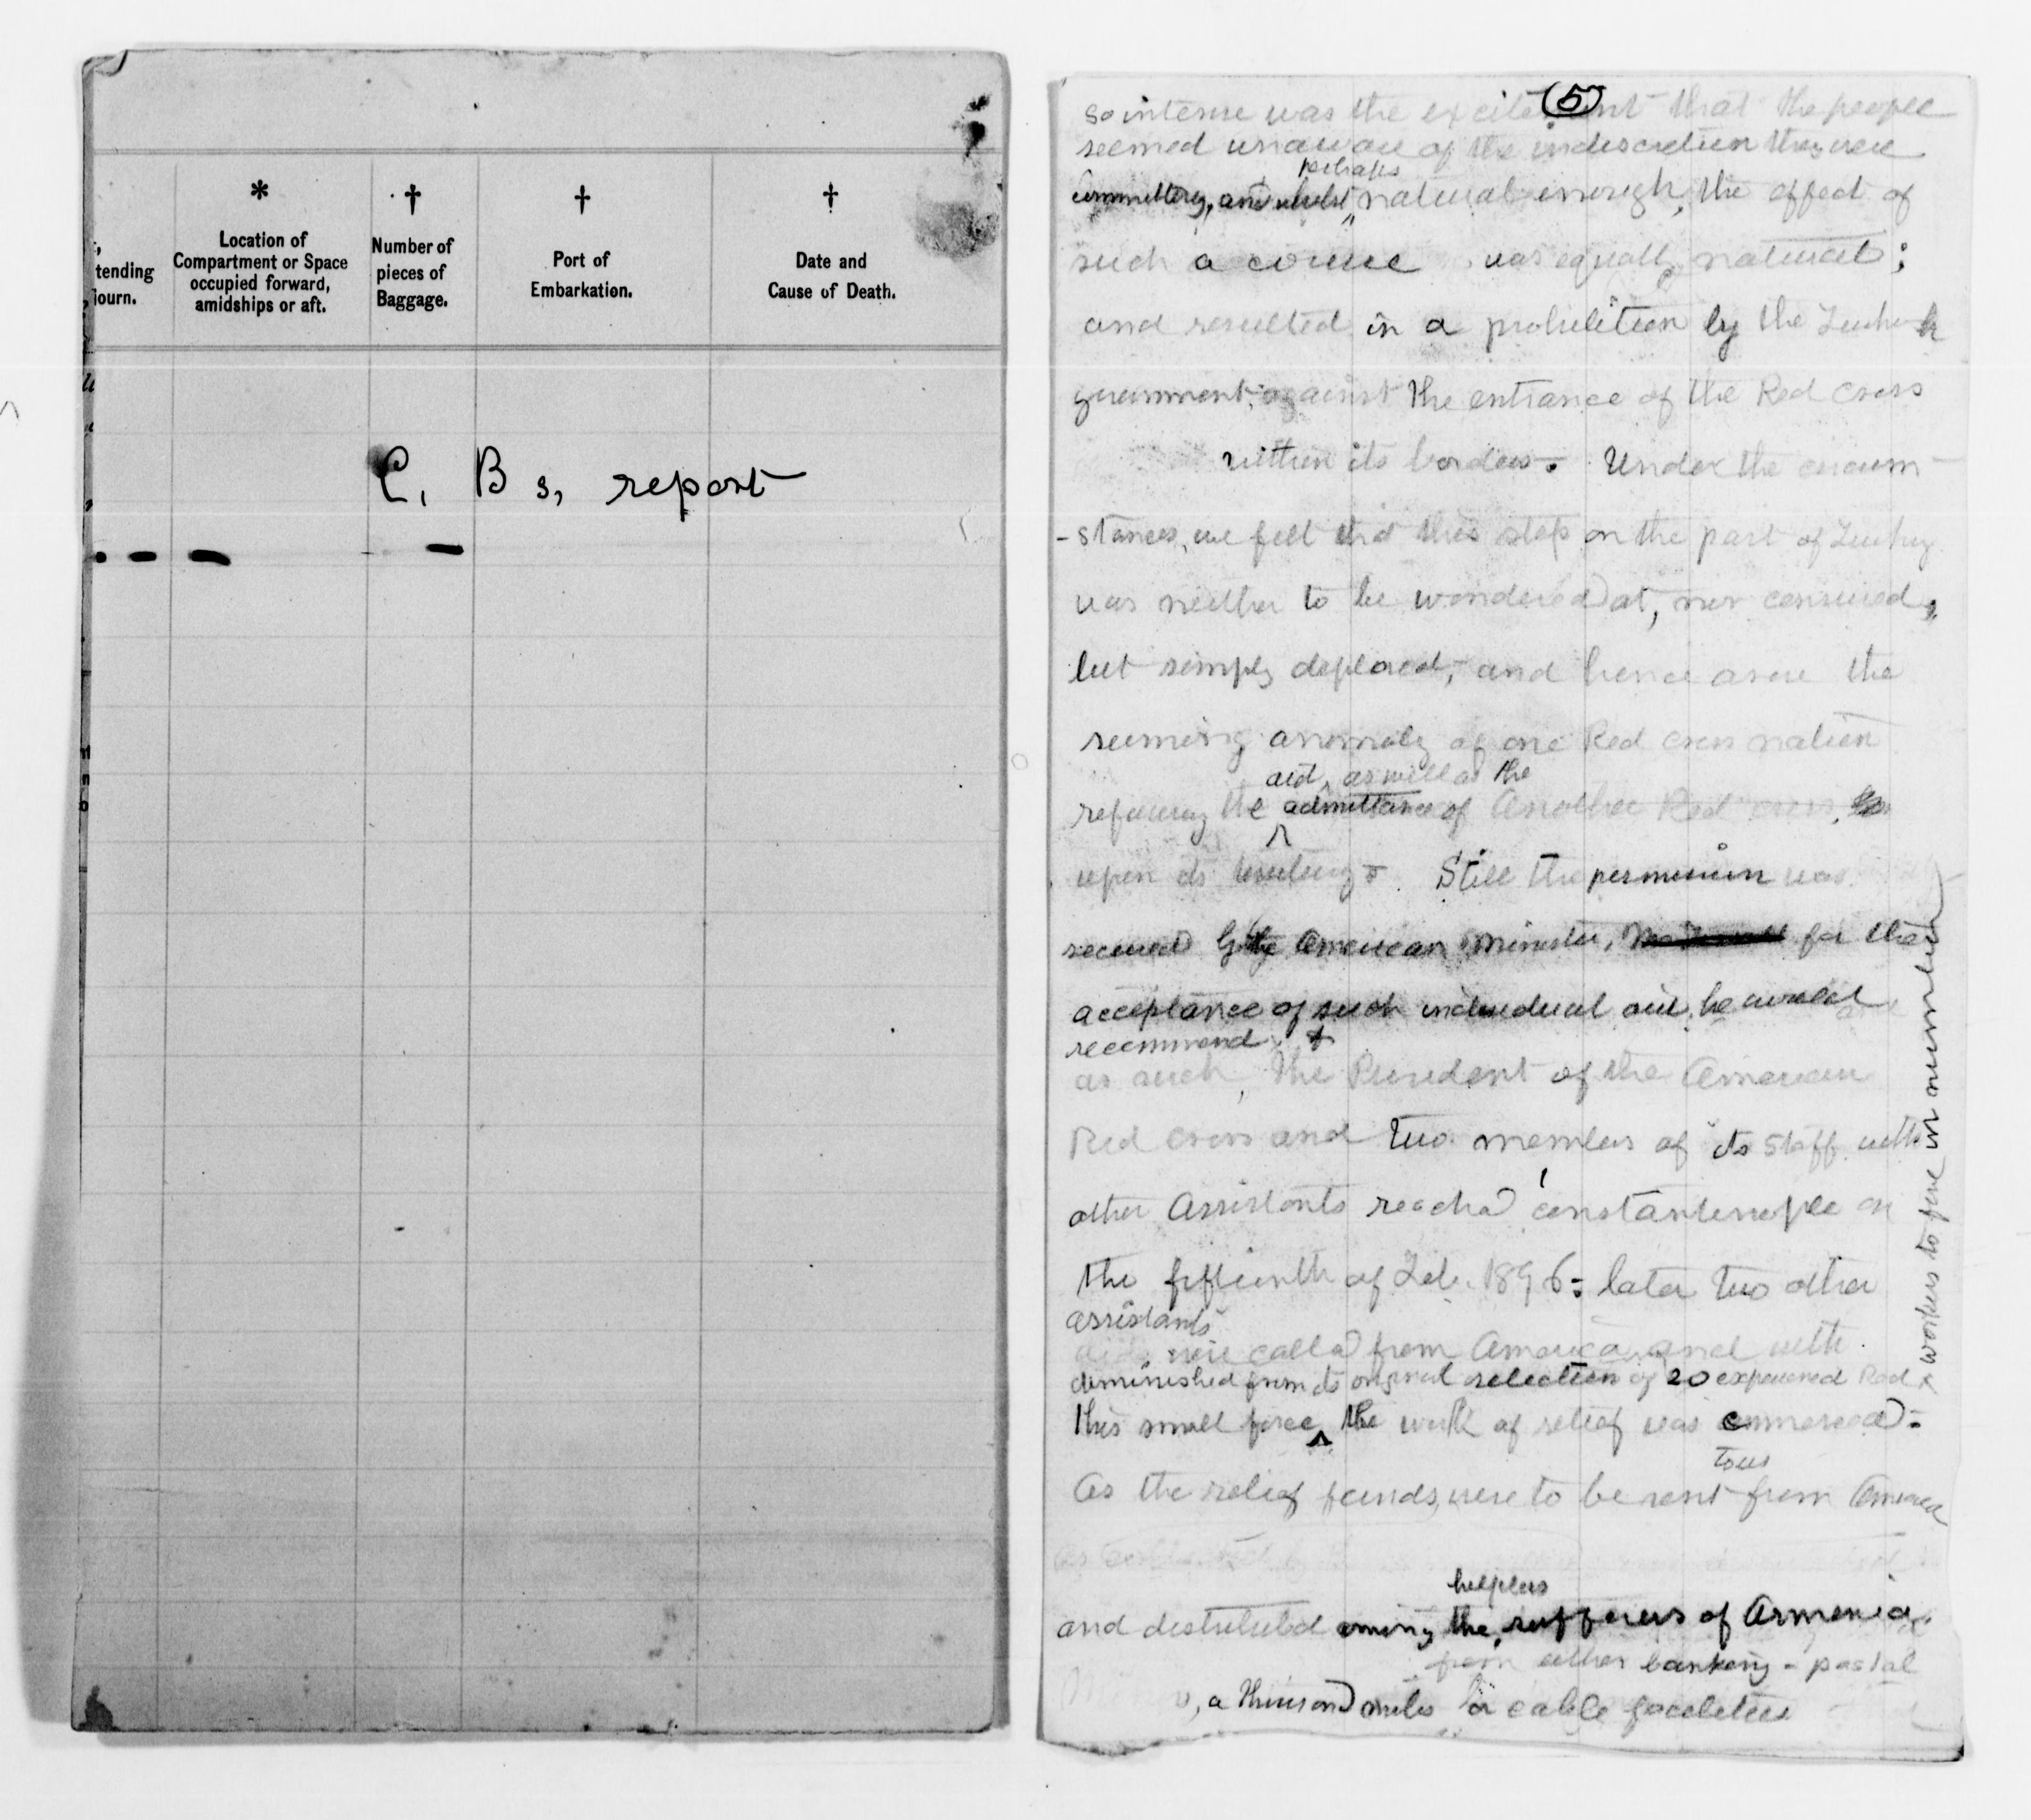 tending
journ.
*
Location of
Compartment or Space
occupied forward,
amidships or aft.
†
Number of
pieces of
Baggage.
†
Port of
Embarkation.
†
Date and
Cause of Death.
C. B s, report
(5)
so intense was the excitement that the people
seemed unaware of the indiscretion they were
perhaps
committing, and whilst natural enough, the effect of
such a course was equally natural;
and resulted in a prohibition by the Turkish
government, against the entrance of the Red Cross
within its borders. Under the circum
-stances, we felt that this step on the part of Turkey
was neither to be wondered at, nor censured,
but simply deplored, and hence arose the
seeming anomaly of one Red Cross nation
aid, as well as the
refusing the admittance of another Red Cross,
upon its Still the permission was
secured by the American Minister, for the
acceptance of such individual aid, he would
recommend &
as such, the President of the American
Red Cross and two members of its staff with
other assistants reached Constantinople on
the fifteenth of Feb. 1896: later two other
assistants
were called from America, and with
diminished from its original selection of 20 experienced Red x
x workers to five in number
this small force the work of relief was commenced:
to us
As the relief funds, were to be sent from America
helpless
and distributed among the sufferers of Armenia,
from either banking - postal
, a thousand miles or cable facilities